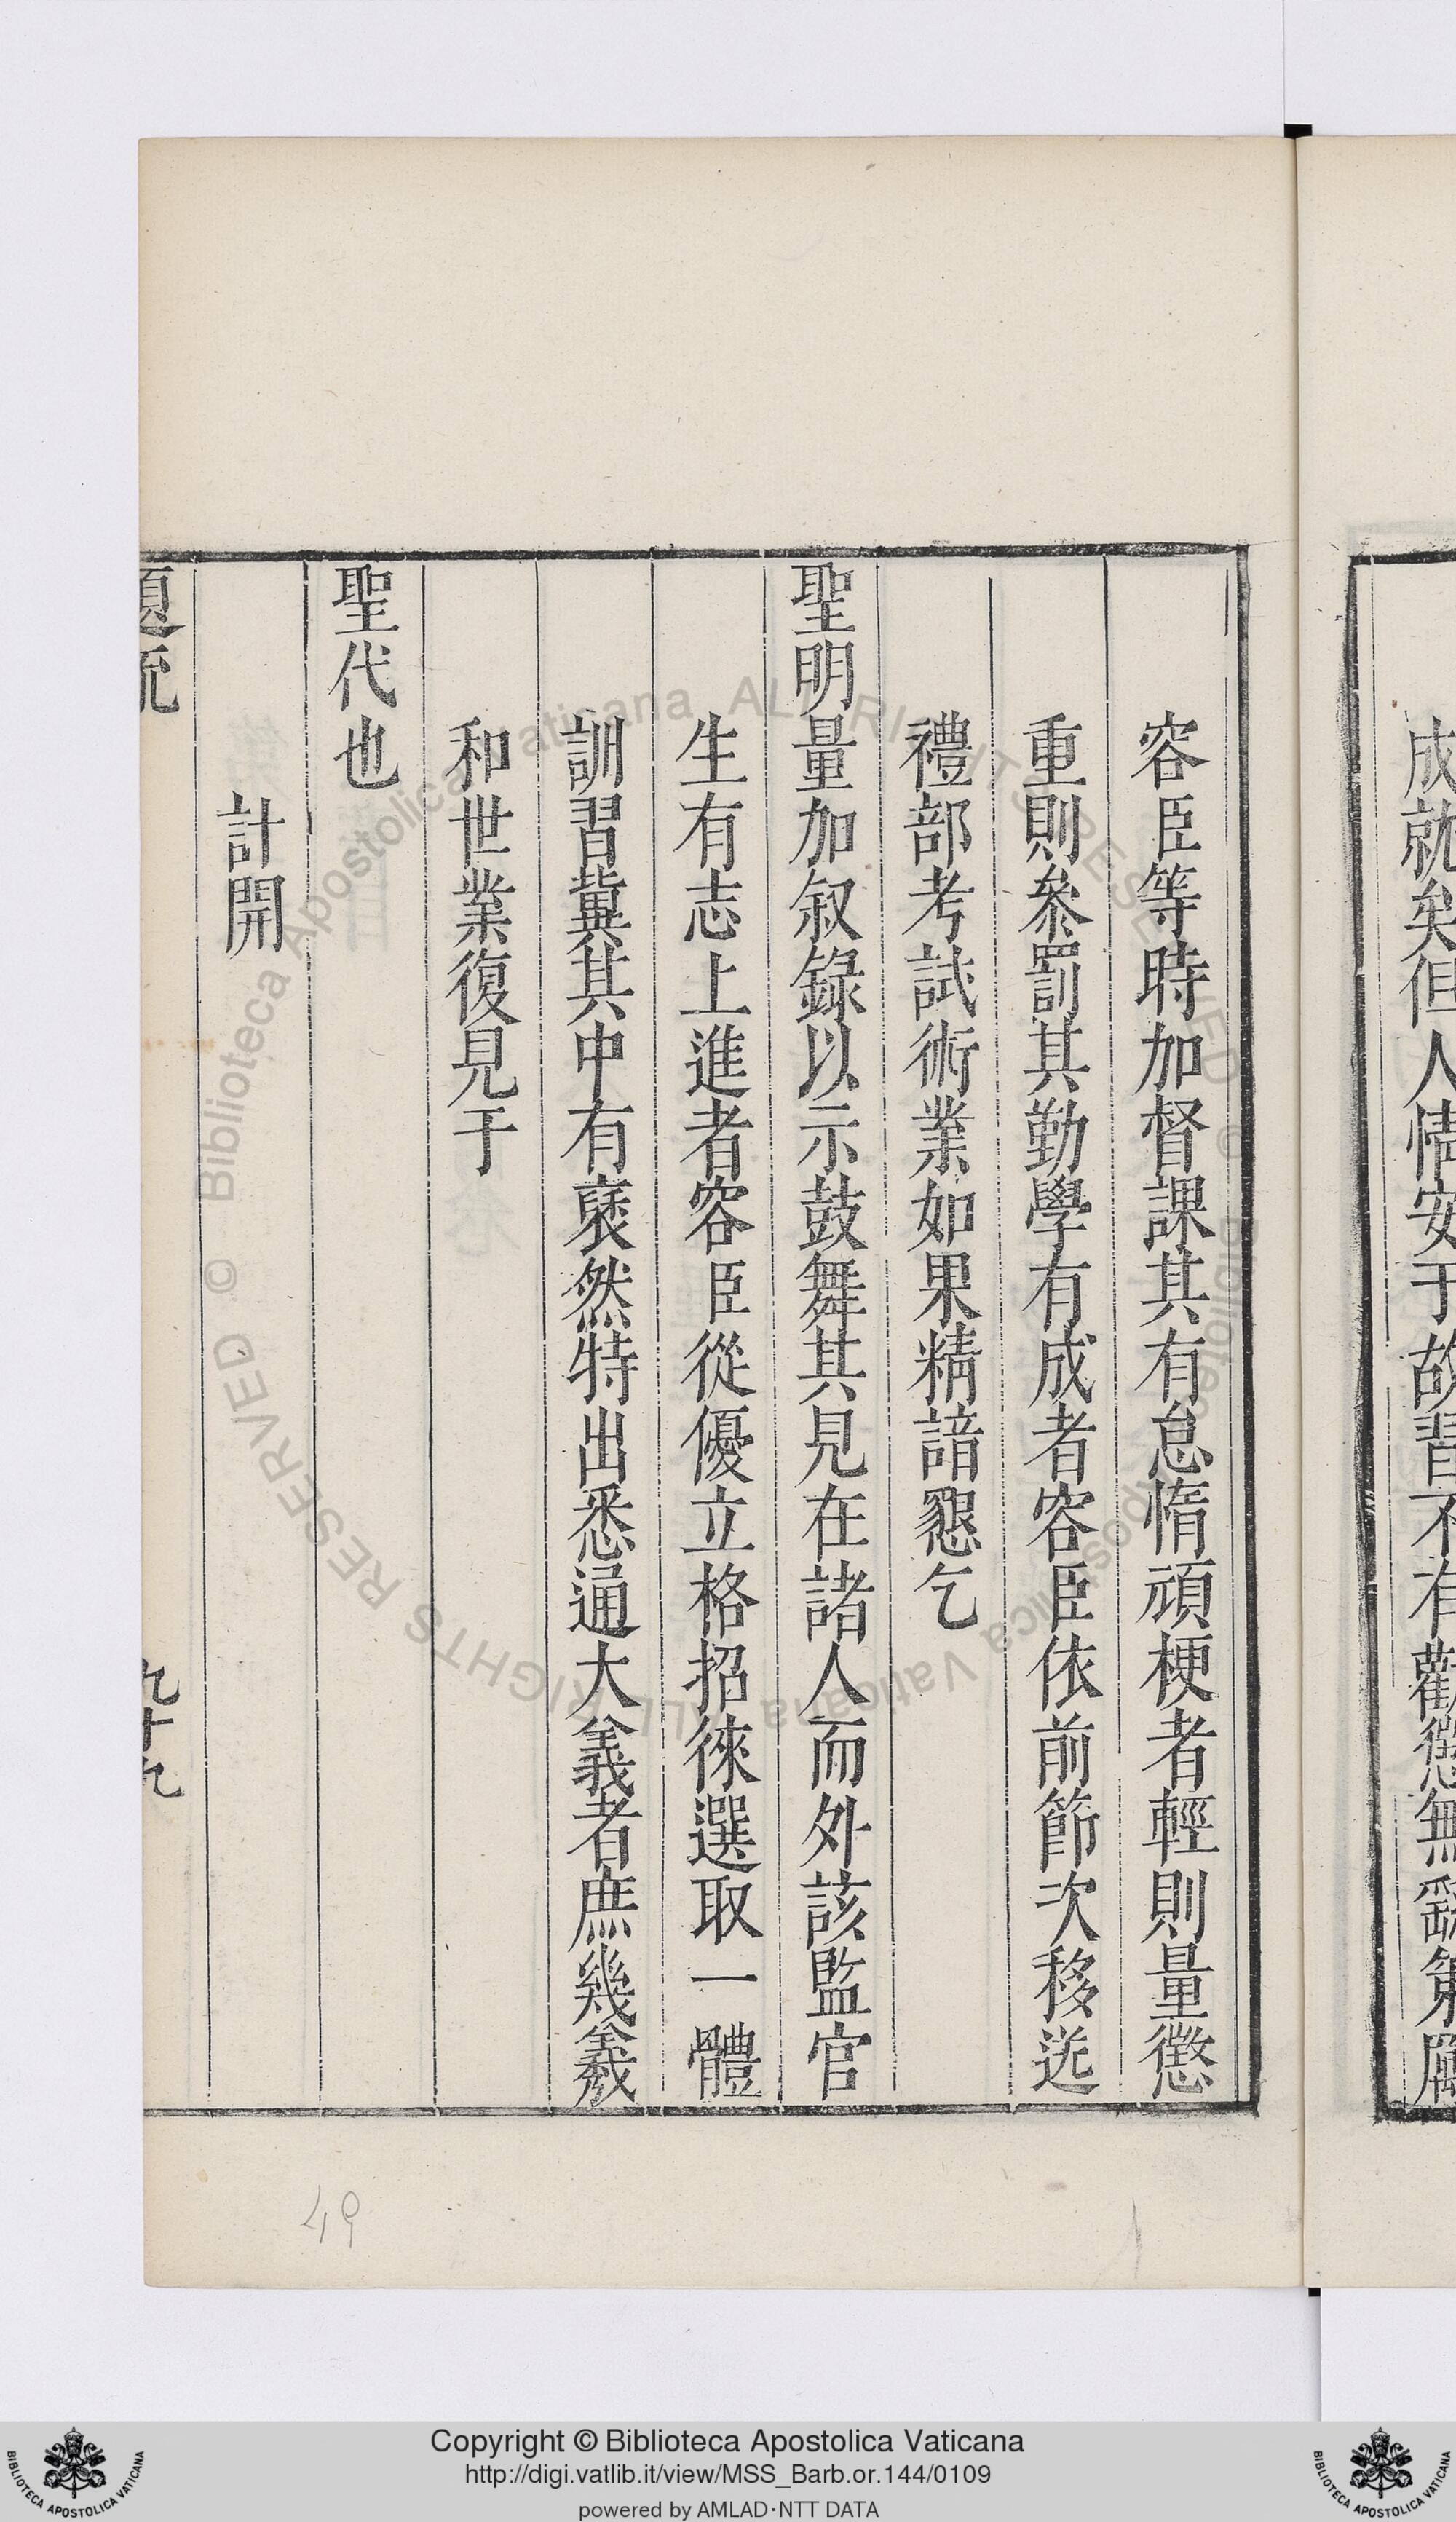 成就矣但人情安于故習不有勸懲無
容臣等時加督課其有怠惰頑梗者輕則量懲
重則叅罰其勤學有成者容臣依前節次移送
禮部考試術業如果精諳懇乞
聖明量加叙錄以示鼓舞其見在諸人而外該監官
生有志上進者容臣從優立格招徠選取一體
訓習冀其中有褎然特出悉通大義者庶幾羲
和世業復見于
聖代也
計開
九十九
49
Copyright © Biblioteca Apostolica Vaticana
http://digi.vatlib.it/view/MSS_Barb.or.144/0109
powered by AMLAD·NTT DATA
BIBLIOTECA APOSTOLICA VATICANA
BIBLIOTECA APOSTOLICA VATICANA
© Biblioteca Apostolica Vaticana ALL RIGHTS RESERVED
© Biblioteca Apostolica Vaticana ALL RIGHTS RESERVED